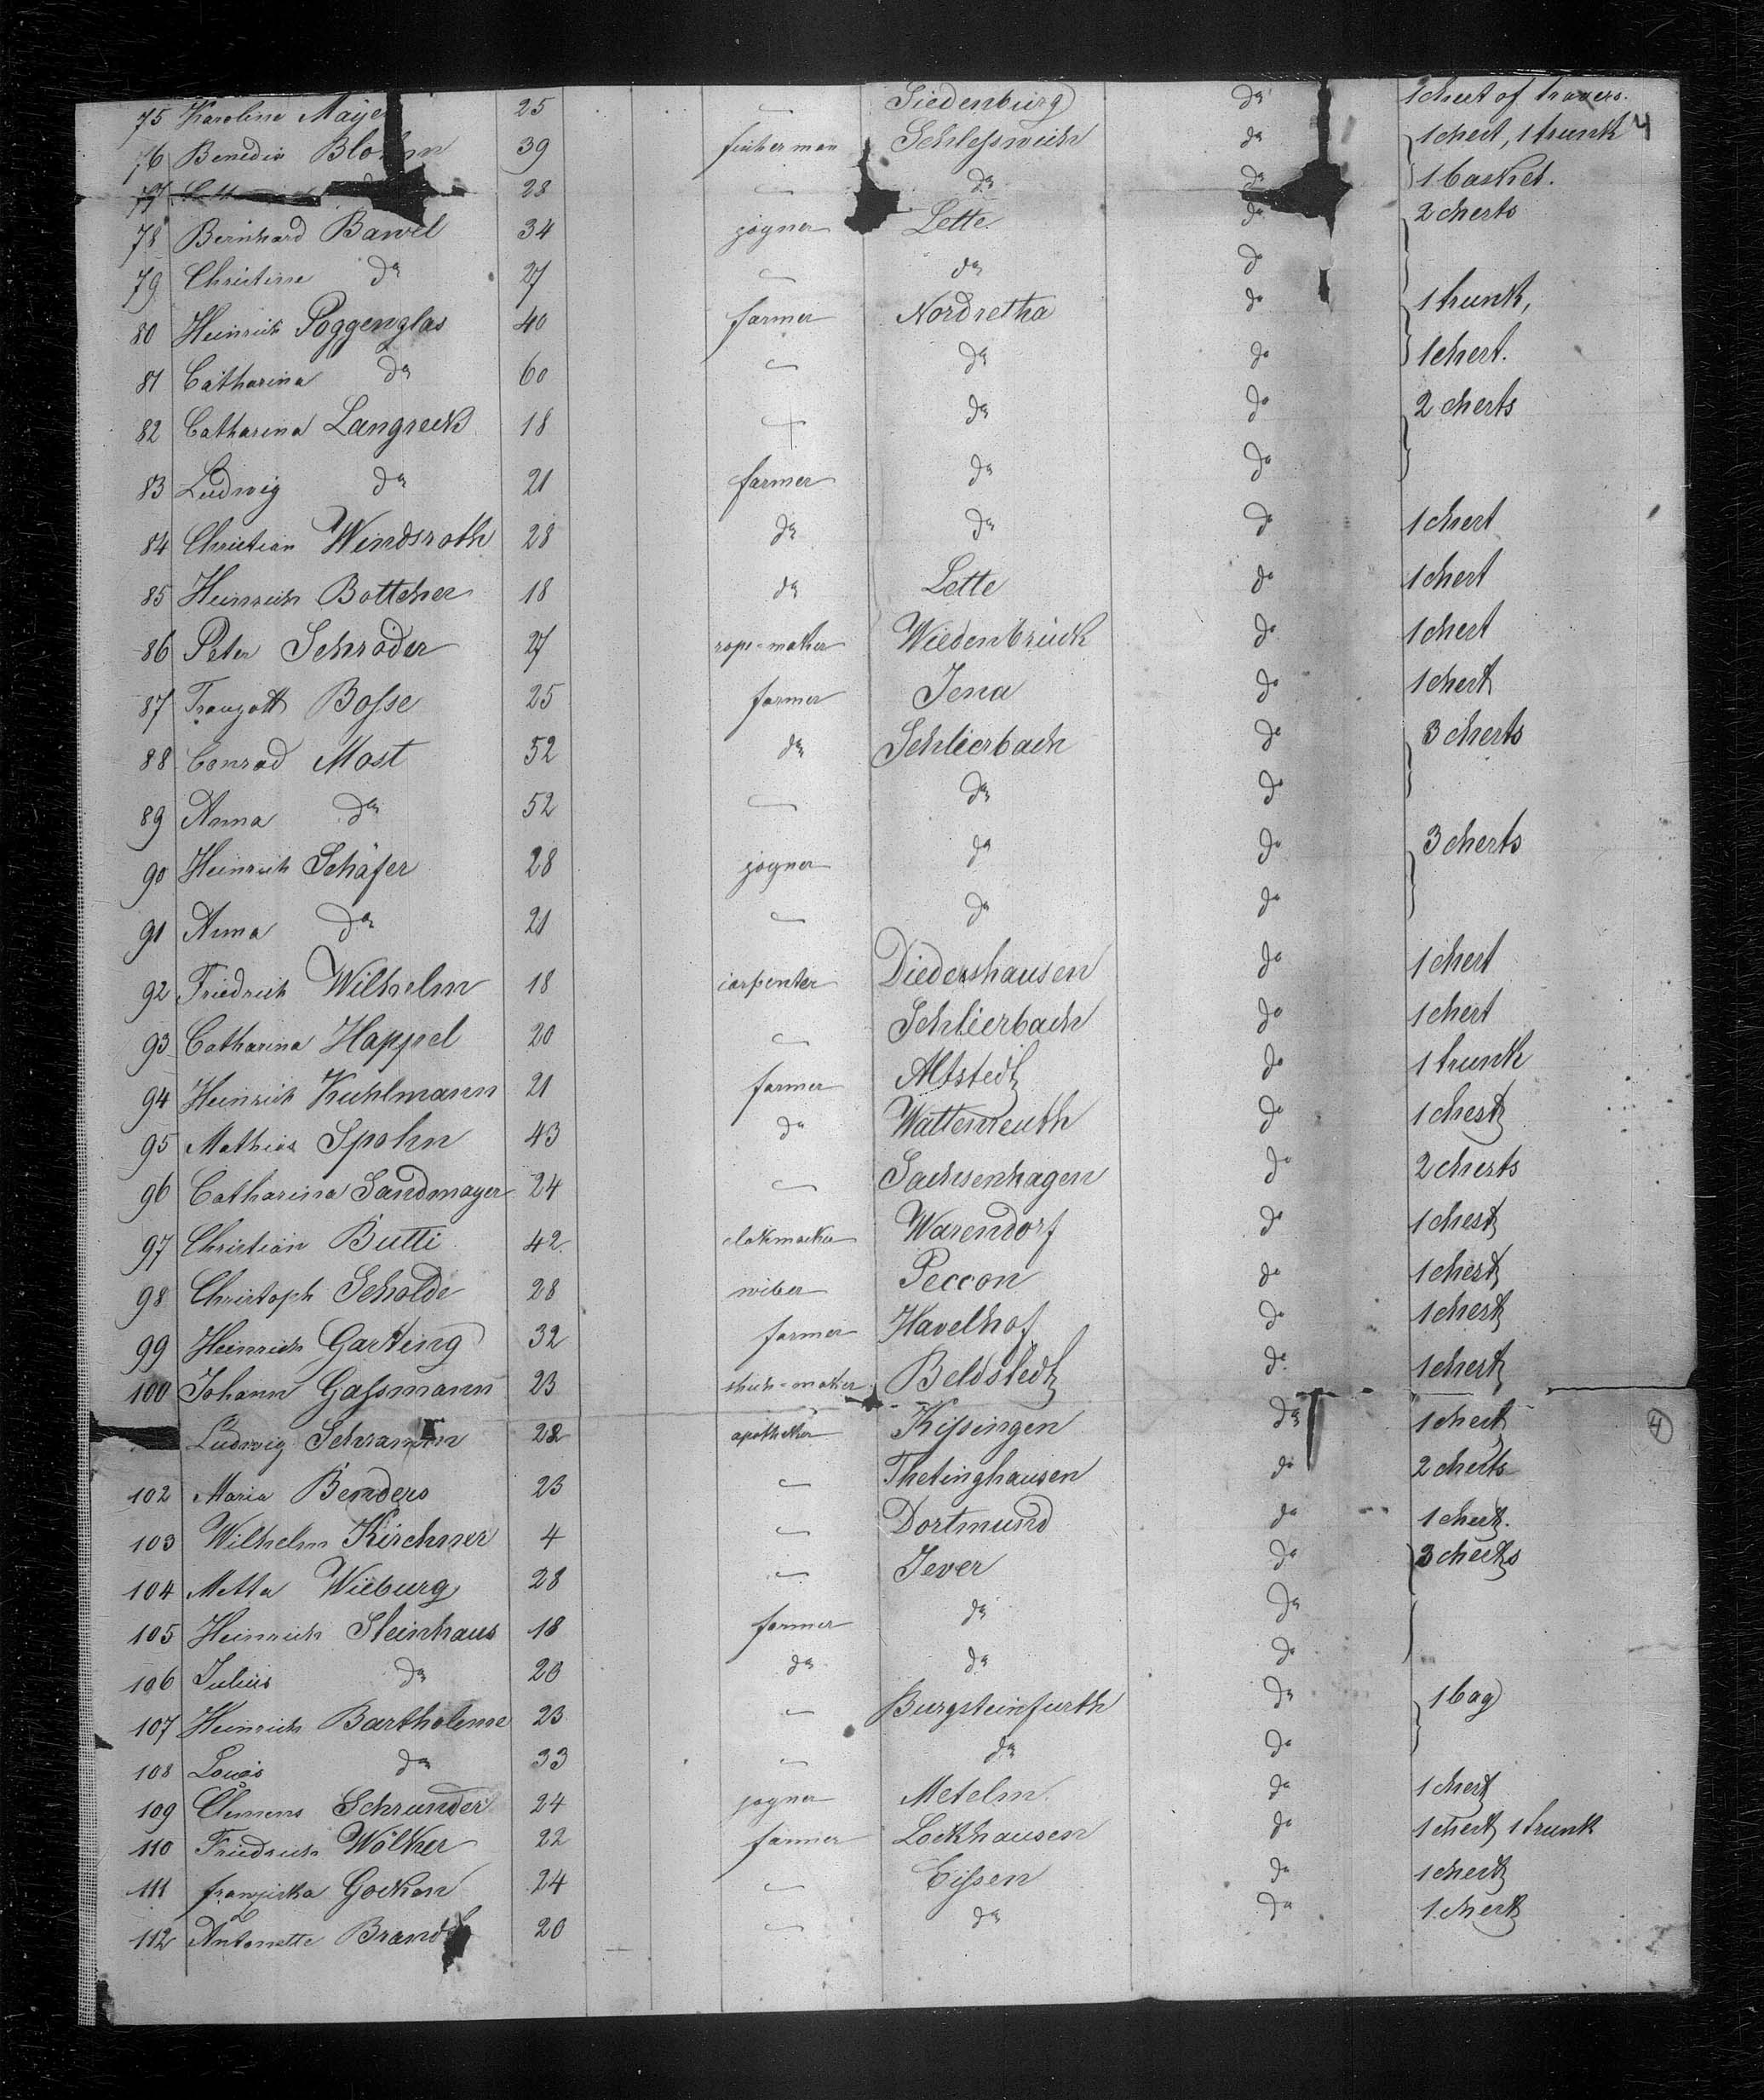 75 Karoline Maye 25 — Siedenburg do 1 chest of travers.
76 Benedix Blohm 39 fisherman Schlesswich do 1 chest, 1 trunk 4
77 28 — do do 1 basket.
78 Bernhard Bawel 34 jogner Lette. do 2 chests
79 Christine do 27 — do do
80 Heinrich Poggenglas 40 farmer Nordretha do 1 trunk,
81 Catharina do 60 — do do 1 chest.
82 Catharina Langreck 18 — do do 2 chests
83 Ludwig do 21 farmer do do
84 Christian Windsroth 28 do do do 1 chest
85 Heinrich Bottcher 18 do Lette do 1 chest
86 Peter Schröder 27 rope-maker Wiedenbrück do 1 chest
87 Traugott Bosse 25 farmer Jena do 1 chest
88 Conrad Most 52 do Schlierbach do 3 chests
89 Anna do 52 — do do
90 Heinrich Schäfer 28 jogner do do 3 chests
91 Anna do 21 — do do
92 Friedrich Wilhelm 18 carpenter Diedershausen do 1 chest
93 Catharina Happel 20 — Schlierbach do 1 chest
94 Heinrich Kuhlmann 21 farmer Altstedt do 1 trunk
95 Mathias Spohn 43 do Wattenreuth do 1 chest
96 Catharina Sandmayer 24 — Sachsenhagen do 2 chests
97 Christian Butti 42 clokmacker Warendorf do 1 chest
98 Christoph Scholde 28 wiber Peccon do 1 chest
99 Heinrich Garking 32 farmer Havelhof do 1 chest
100 Johann Gassmann 23 shuh-maker Beldstedt do 1 chest
Ludwig Schramm 22 apotheker Kissingen do 1 chest 4
102 Maria Benders 23 — Thetinghausen do 2 chests
103 Wilhelm Kirchner 4 — Dortmund do 1 chest.
104 Metta Wieburg 28 — Jever do 3 chests
105 Heinrich Steinhaus 18 farmer do do
106 Julius do 20 do do do
107 Heinrich Bartholeme 23 — Burgsteinfurth do 1 bag
108 Louis do 33 — do do
109 Clemens Schrunder 24 jogner Metelm. do 1 chest
110 Friedrich Wölker 22 farmer Lockhausen do 1 chest 1 trunk
111 franziska Gocken 24 — Eissen do 1 chest
112 Antonette Brandt 20 — do do 1 chest